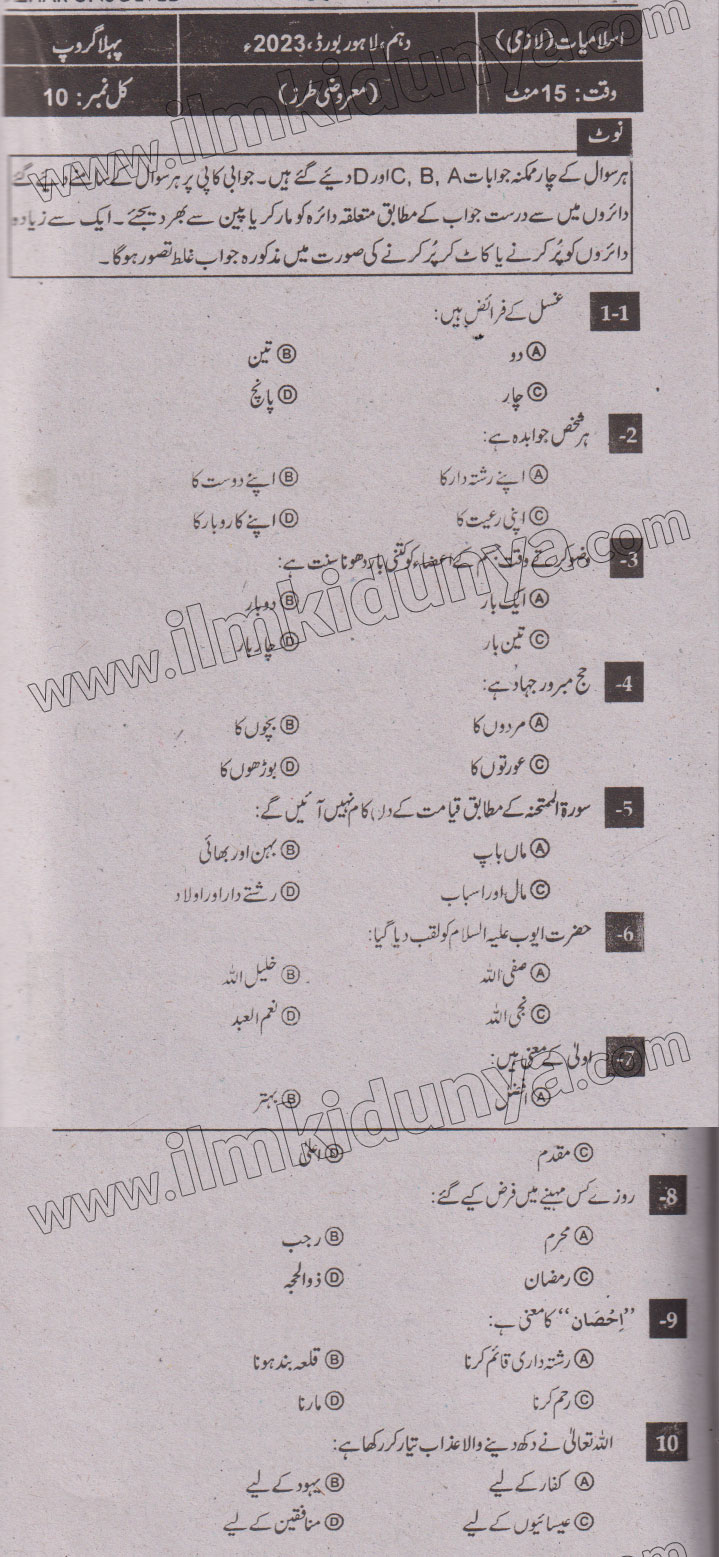 اسلامیات (لازمی) دہم، لاہور بورڈ، 2023ء پہلا گروپ
وقت: 15 منٹ (معروضی طرز) کل نمبر: 10
نوٹ
ہر سوال کے چار ممکنہ جوابات C, B, A اور D دیئے گئے ہیں۔ جوابی کاپی پر ہر سوال کے سامنے دیئے گئے
دائروں میں سے درست جواب کے مطابق متعلقہ دائرہ کو مارکر یا پین سے بھر دیجئے۔ ایک سے زیادہ
دائروں کو پُر کرنے یا کاٹ کر پُر کرنے کی صورت میں مذکورہ جواب غلط تصور ہو گا۔
1-1 غسل کے فرائض ہیں:
Ⓐ دو Ⓑ تین
Ⓒ چار Ⓓ پانچ
-2 ہر شخص جوابدہ ہے:
Ⓐ اپنے رشتہ دار کا Ⓑ اپنے دوست کا
Ⓒ اپنی رعیت کا Ⓓ اپنے کاروبار کا
-3 وضو کرتے وقت جسم کے اعضاء کو کتنی بار دھونا سنت ہے:
Ⓐ ایک بار Ⓑ دو بار
Ⓒ تین بار Ⓓ چار بار
-4 حج مبرور جہاد ہے:
Ⓐ مردوں کا Ⓑ بچوں کا
Ⓒ عورتوں کا Ⓓ بوڑھوں کا
-5 سورۃ الممتحنہ کے مطابق قیامت کے دن کام نہیں آئیں گے:
Ⓐ ماں باپ Ⓑ بہن اور بھائی
Ⓒ مال اور اسباب Ⓓ رشتے دار اور اولاد
-6 حضرت ایوب علیہ السلام کو لقب دیا گیا:
Ⓐ صفی اللہ Ⓑ خلیل اللہ
Ⓒ نجی اللہ Ⓓ نعم العبد
-7 اولیٰ کے معنی ہیں:
Ⓐ افضل Ⓑ بہتر
Ⓒ مقدم Ⓓ اعلیٰ
-8 روزے کس مہینے میں فرض کیے گئے:
Ⓐ محرم Ⓑ رجب
Ⓒ رمضان Ⓓ ذوالحجہ
-9 ”اِحْصَان“ کا معنی ہے:
Ⓐ رشتہ داری قائم کرنا Ⓑ قلعہ بند ہونا
Ⓒ رحم کرنا Ⓓ مارنا
10 اللہ تعالیٰ نے دکھ دینے والا عذاب تیار کر رکھا ہے:
Ⓐ کفار کے لیے Ⓑ یہود کے لیے
Ⓒ عیسائیوں کے لیے Ⓓ منافقین کے لیے
www.ilmkidunya.com
www.ilmkidunya.com
www.ilmkidunya.com